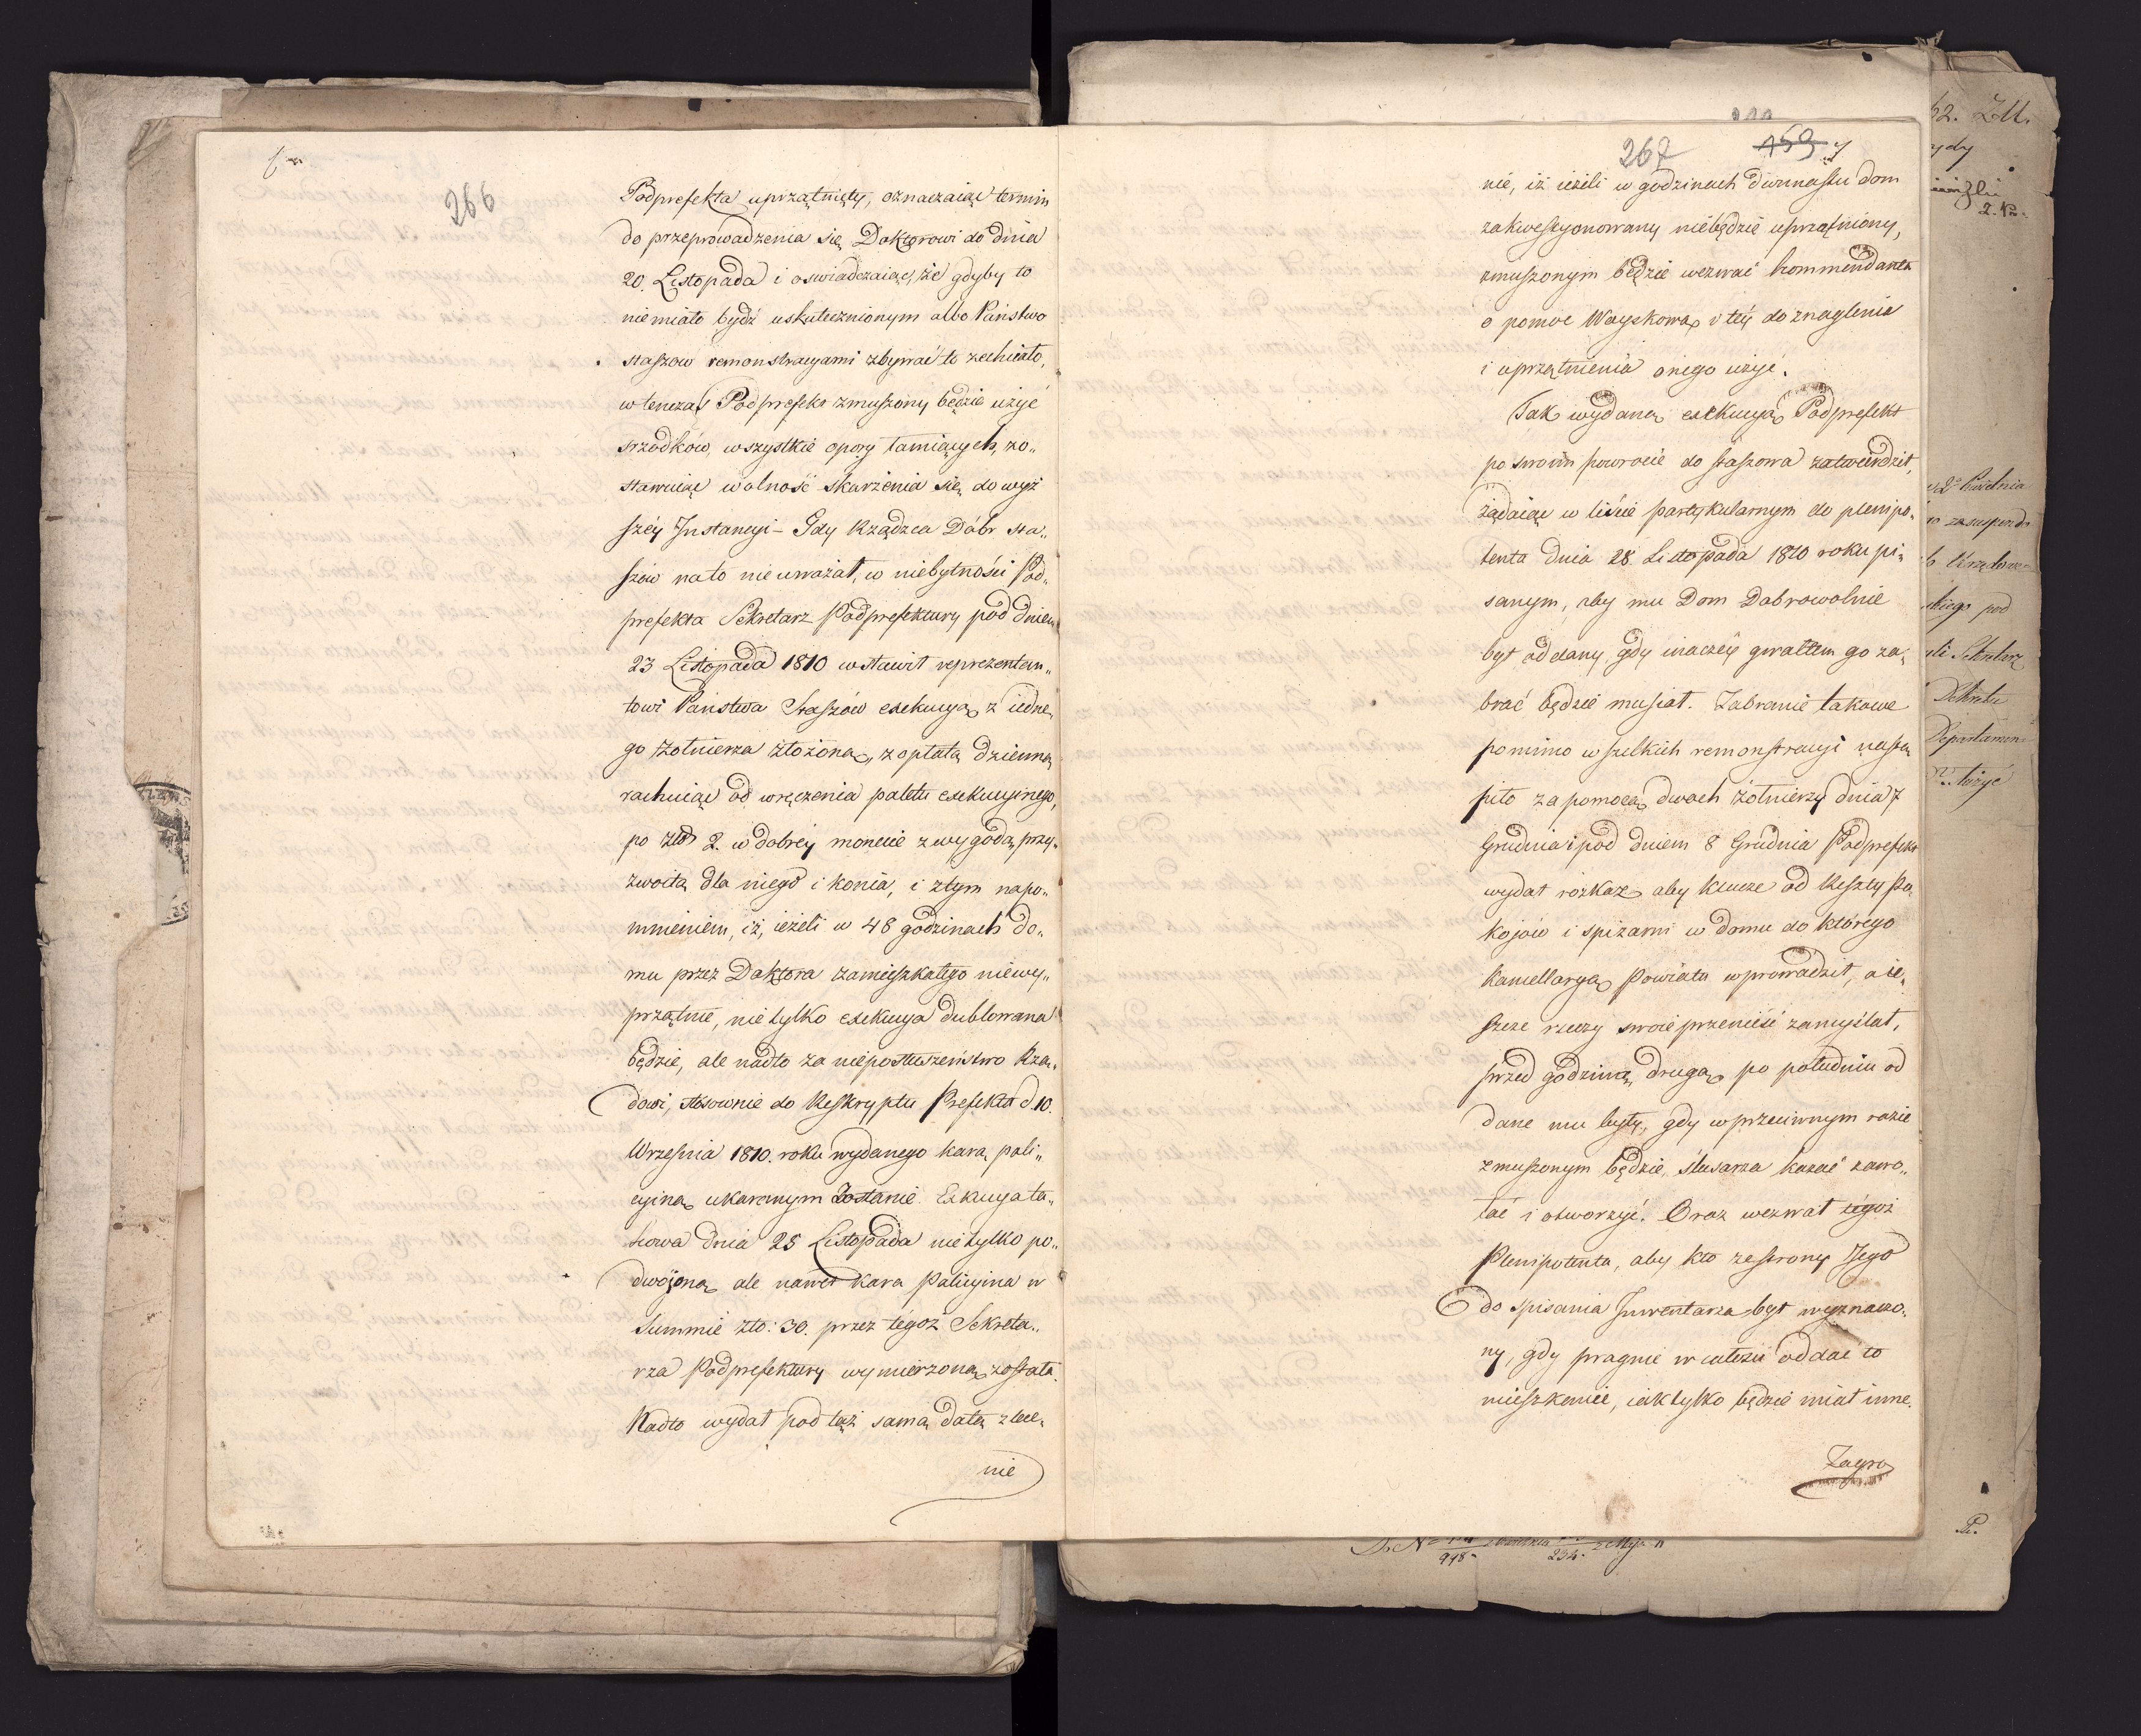 266
Podprefekta uprzątnięty, oznaczaiąc termin
do przeprowadzenia się Doktorowi do dnia
20. Listopada i oswiadczaiąc, że gdyby to
nie miało bydź uskutecznionym albo Państwo
Staszow remonstracyami zbywać to zechciało,
wtenczas Podprefekt zmuszony będzie użyć
srzodków, wszystkie opory łamiących, zo„
stawuiąc wolność skarżenia się do wyż
széy Instancyi – Gdy Rządzca Dóbr Sta„
szów na to nie uważał, w niebytności Pod„
prefekta Sekretarz Podprefektury pod dniem
23 Listopada 1810 wstawił reprezentan„
towi Państwa Staszów exekucyą z iedne„
go żołnierza złożoną, z opłatą dzienną
rachuiąc od wręczenia paletu exekucyinego,
po Złt 2. w dobréy monecie z wygodą przy„
zwoitą dla niego i konia, i z tym napo„
mnieniem, iż, ieżeli w 48 godzinach do„
mu przez Doktora zamieszkałego niewy„
przątnie, nie tylko exekucya dublowana
będzie, ale nadto za nieposłuszeństwo Rzą„
dowi, stosownie do Reskryptu Prefekta d. 10.
Września 1810. roku wydanego karą poli„
cyiną ukaranym zostanie. Exkucya ta„
kowa dnia 25 Listopada nie tylko po„
dwojoną ale nawet kara Policyina w
Summie złto: 30. przez tegoż Sekreta„
rza Podprefektury wymierzoną została.
Nadto wydał pod tąż samą datą zlece„
nie
267
159
7
nié, iż ieżeli w godzinach dwunastu dom
zakwestyonowany niebędzie uprzątniony,
zmuszonym będzie wezwać kommendanta
o pomoc Woyskową i téy do znaglenia
i uprzątnienia onego użyć.
Tak wydaną exekucyą Podprefekt
po swoim powrocie do Staszowa zatwierdził,
żądaiąc w liście partykularnym do plenipo„
tenta dnia 28 Listopada 1810 roku pi„
sanym, aby mu Dom Dobrowolnie
był oddany, gdy inaczéy gwałtem go za„
brać będzie musiał. Zabranie takowe
pomimo wszelkich remonstracyi nastą„
piło za pomocą dwoch żołnierzy dnia 7
Grudnia i pod dniem 8 Grudnia Podprefekt
wydał rozkaz aby klucze od Reszty Po„
kojów i spiżarni w domu do którego
Kancellaryą Powiatu wprowadził, a ie„
szcze rzeczy swoie przenieść zamyślał,
przed godziną drugą po południu od
dane mu były, gdy w przeciwnym razie
zmuszonym będzie, ślusarza kazać zawo„
łać i otworzyć. Oraz wezwał tégoż
Plenipotenta, aby kto ze strony Jego
do spisania Inwentarza był wyznaczo„
ny, gdy pragnie w całości oddać to
mieszkanie, iak tylko będzie miał inne.
Zagro
62. ZM.
2. K.
Kwietnia
pod
Sekretarz
Dekretu
Departamen
użyć
948
234